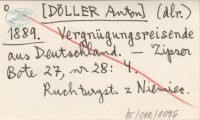 0 [DÖLLER Anton] (dlr.)
1889. Vergnügungsreisende
aus Deutschland. Zipser
Bote 27, nr 28: 4.
Ruch turyst. z Niemiec.